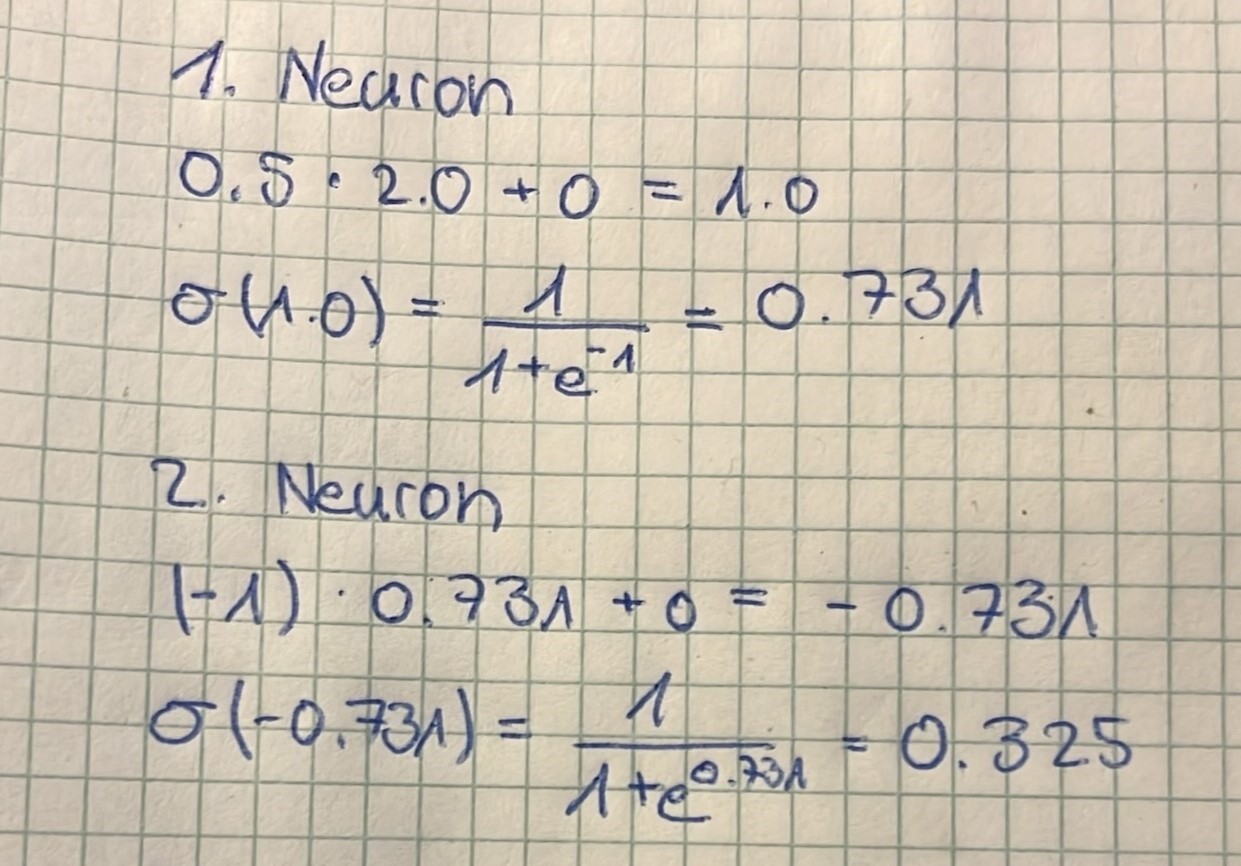 1. Neuron
0.5 · 2.0 + 0 = 1.0
σ(1.0) = 1/(1+e^-1) = 0.731
2. Neuron
(-1) · 0.731 + 0 = - 0.731
σ(-0.731) = 1/(1+e^0.731) = 0.325